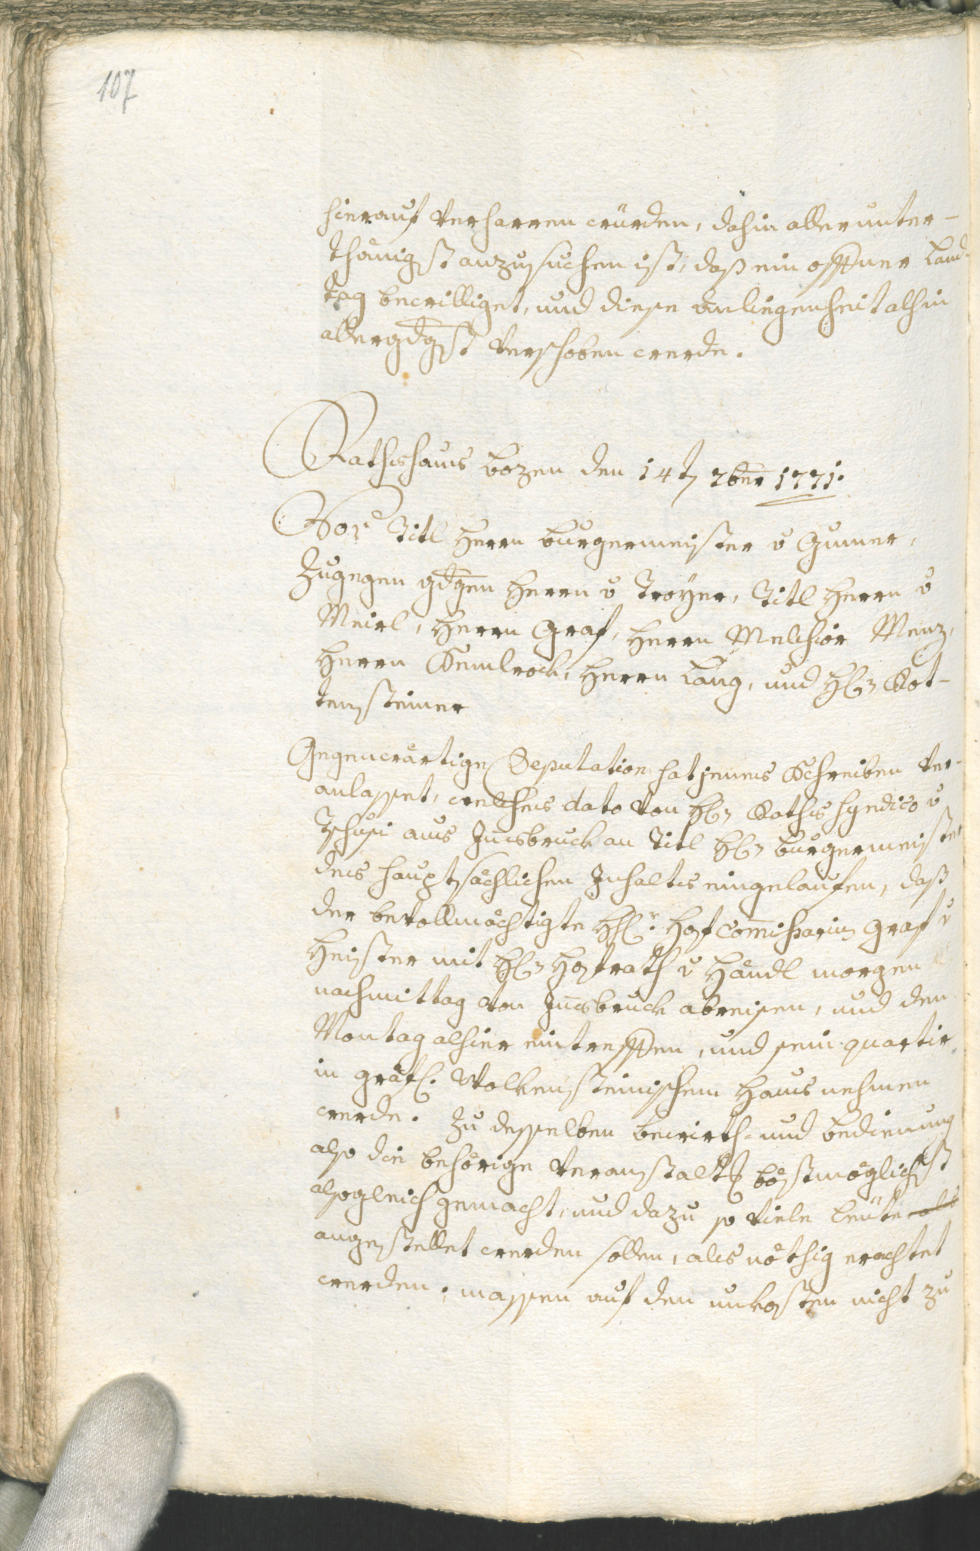 107
hierauf verharren würden, dahin allerunter-
thänigst anzusuchen ist, daß ein offener Land-
tag bewilliget, und diese Anliegenheit alhin
allergdgst verschoben werde.
Rathshaus Bozen den 14t 7ber 1771.
Vor Titl Herrn Burgermeister v Gumer,
Zugegen gdgen Herrn v Troyer, Titl Herrn v
Meirl, Herrn Graf, Herrn Melchior Menz,
Herrn Kemlrock, Herrn Lang, und Hl: Rot-
tensteiner
Gegenwärtige Deputation hat jenes Schreiben ver-
anlasset, welches dato von Hl: Raths Syndico v
Zschusi aus Insbruck an Titl Hl: Burgermeister
des hauptsächlichen Inhaltes eingelaufen, daß
der bevollmächtigte Hl: Hofcommissarius Graf v
Heister mit Hl: Hofrath v Händl morgen
nachmittag von Insbruck abreisen, und den
Montag alhier eintreffen, und sein quartir
in gräfl: Wolkensteinischem Haus nehmen
werde. Zu desselben bewirth- und bedienung
also die behörige Veranstaltg böstmöglichst
alsogleich gemacht, und dazu so viele Leute als
angestellet werden sollen, als nöthig erachtet
werden, massen auf den unkosten nicht zu